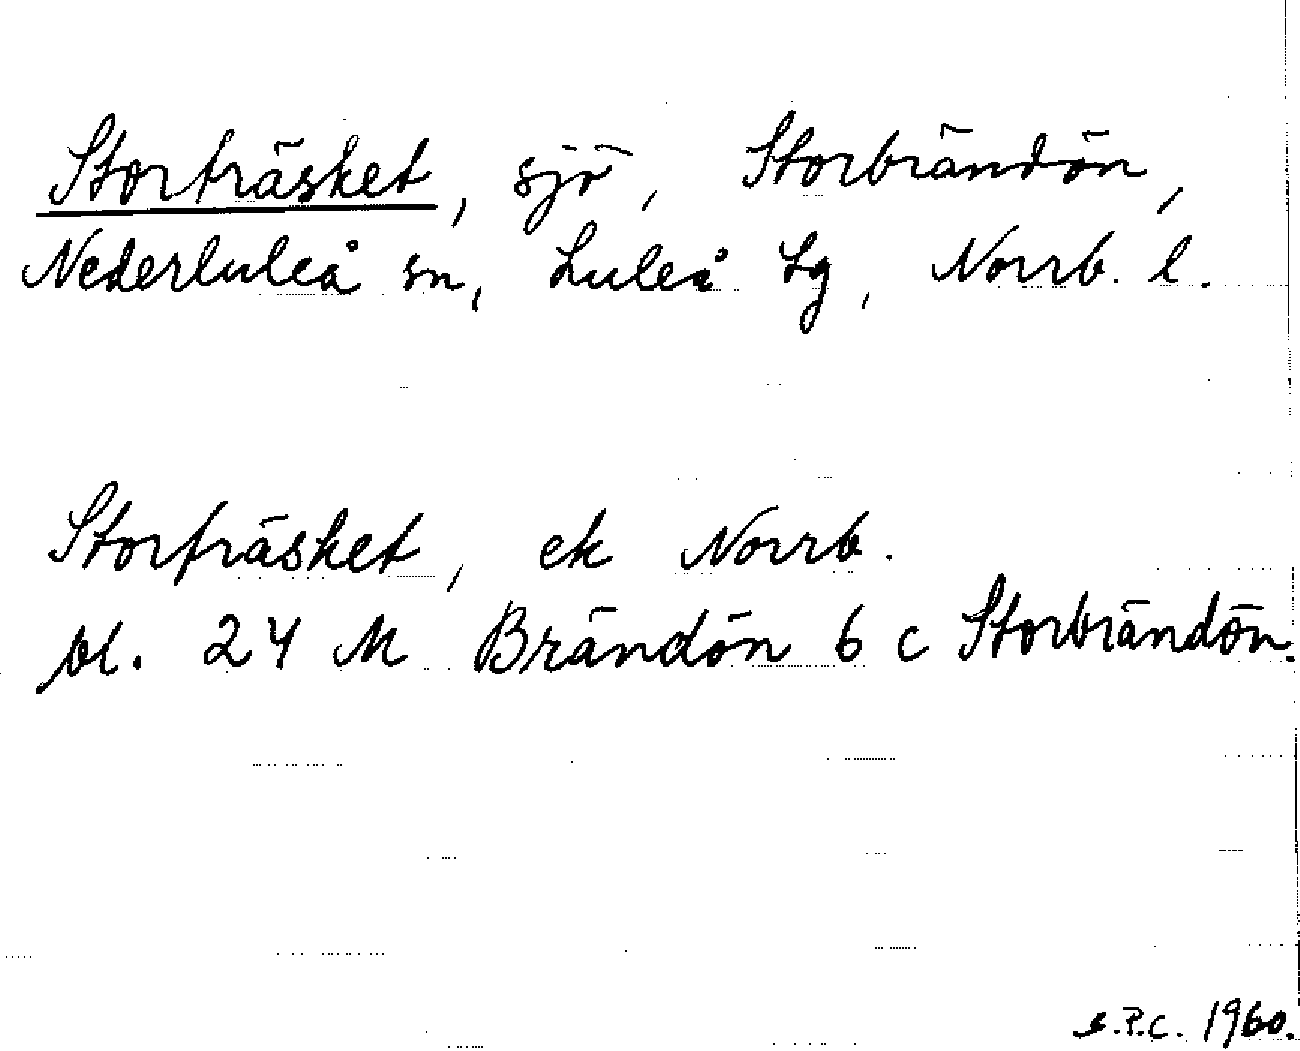 Storträsket, sjö, Storbrändön,
Nederluleå sn, Luleå tg, Norrb. l.
Storträsket, ek Norrb.
bl. 24 M Brändön 6 c Storbrändön.
P.C. 1960.